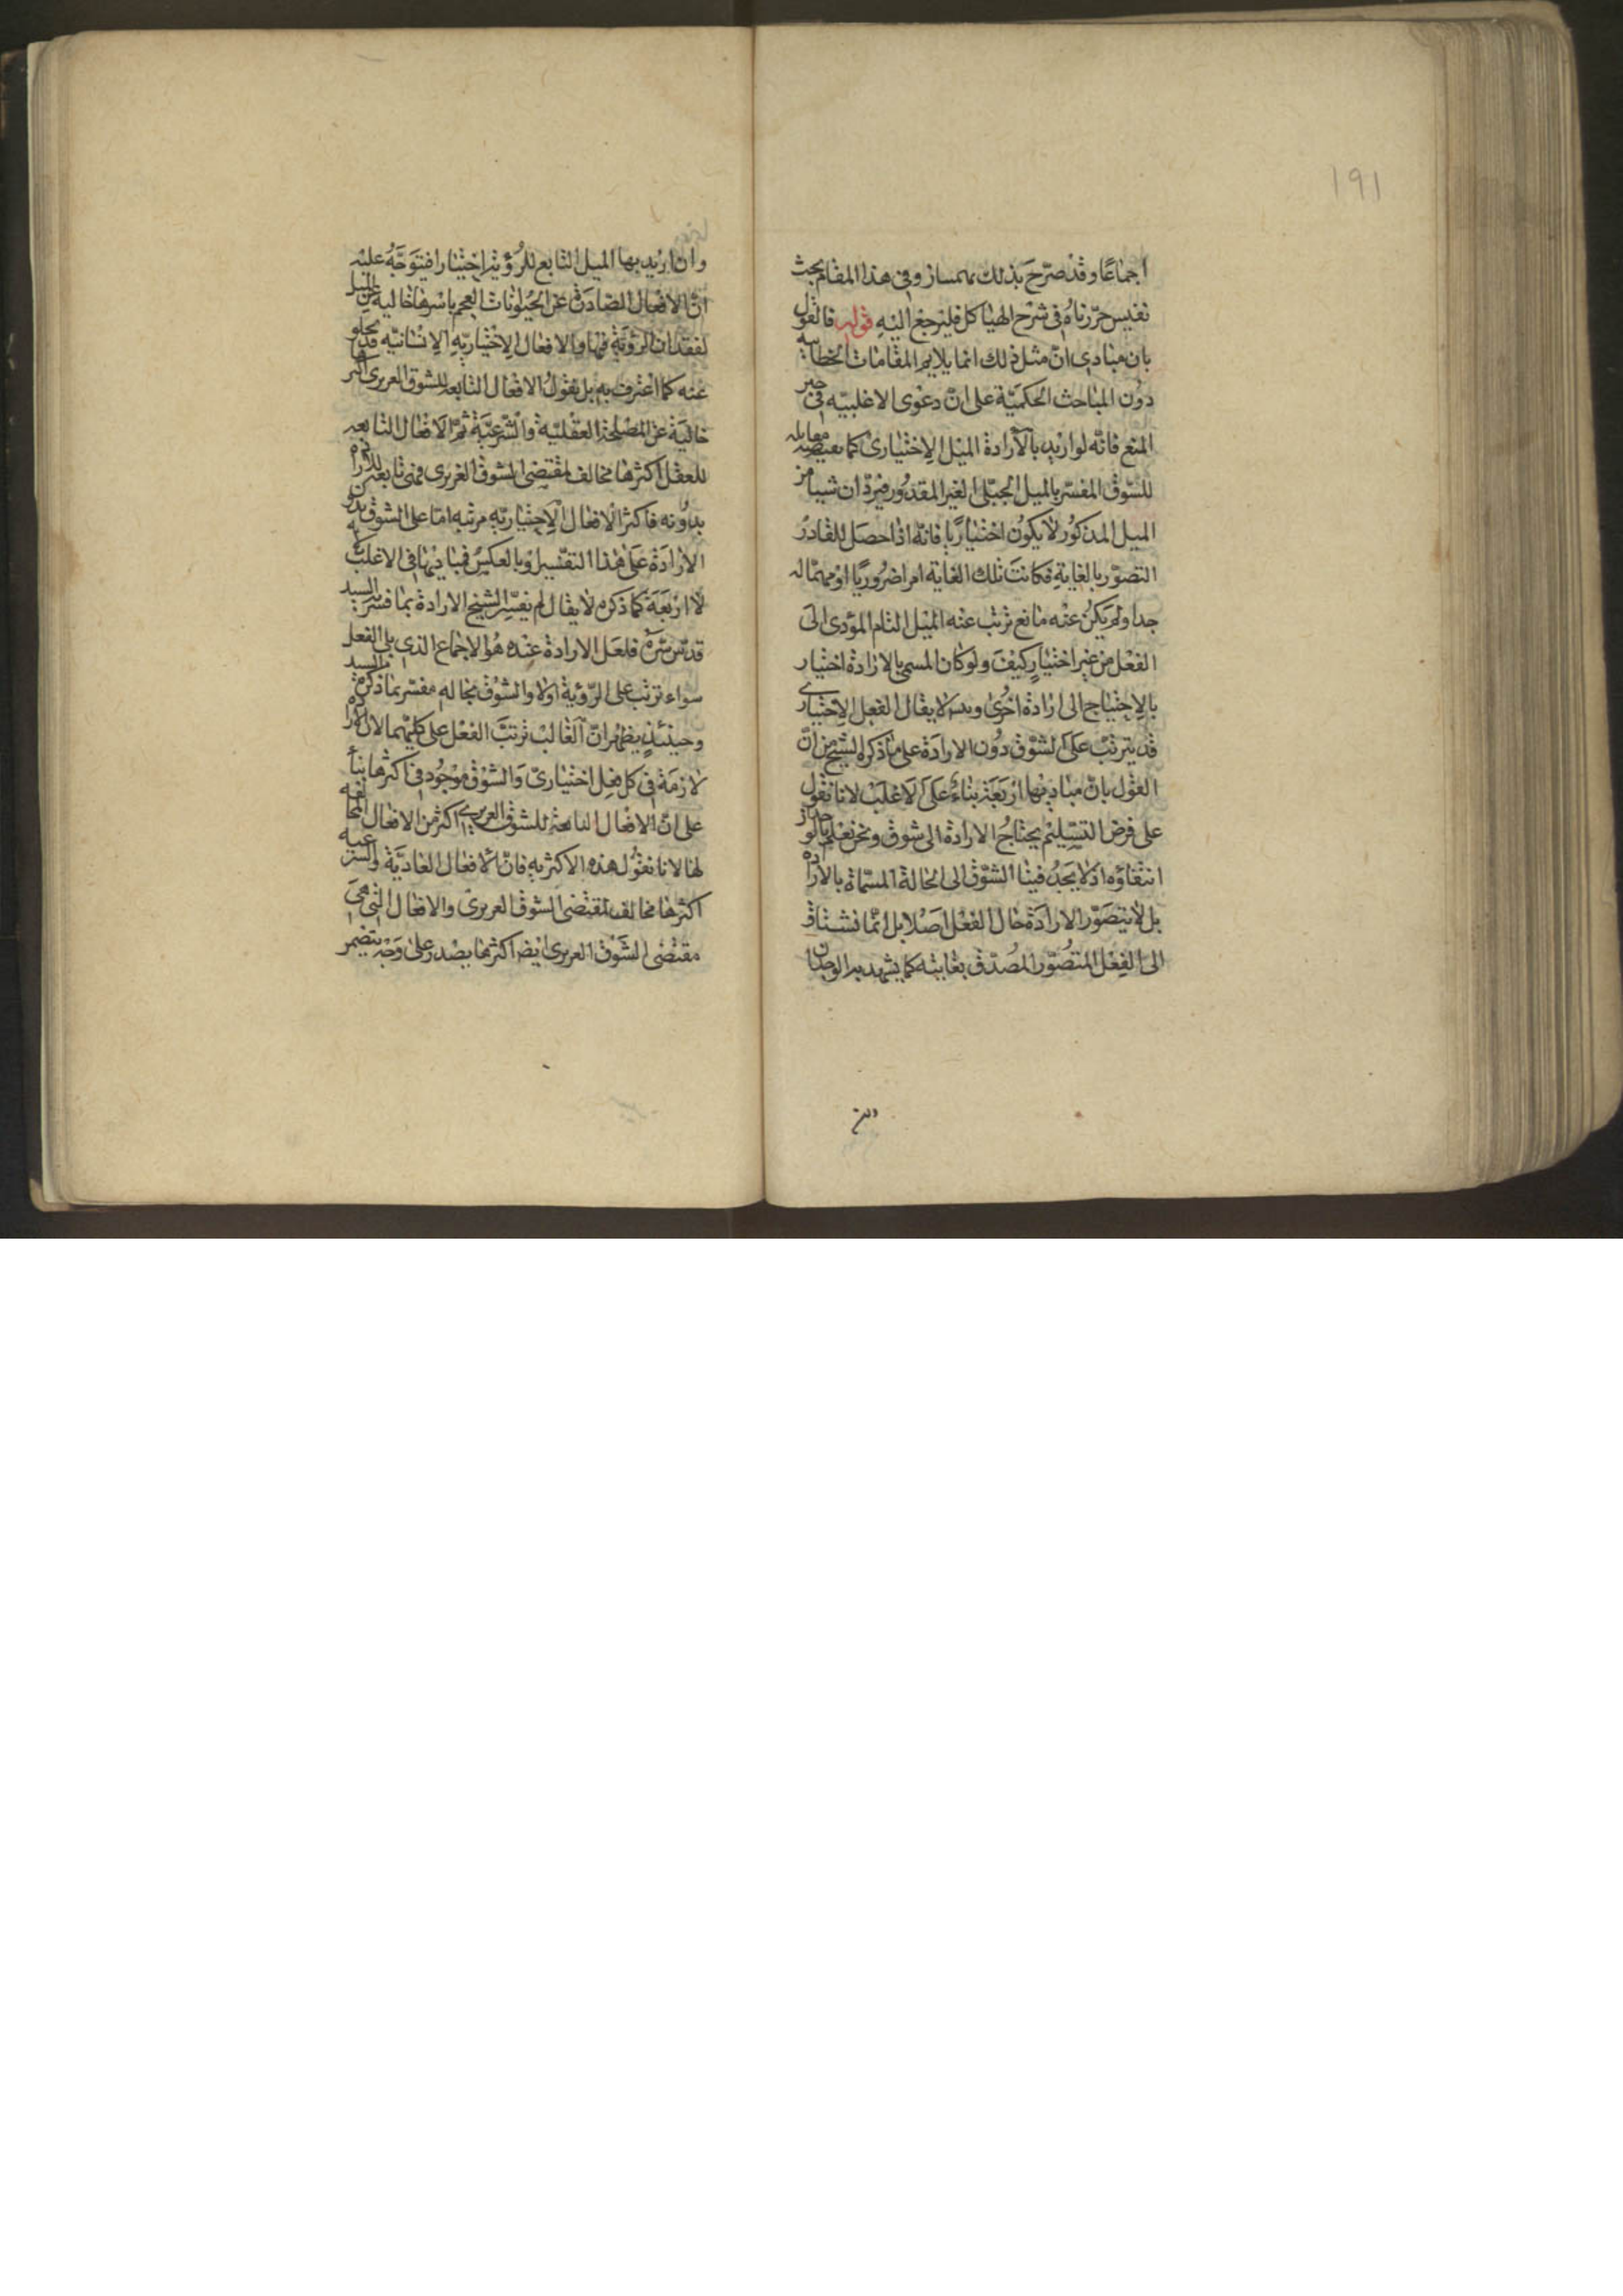 ١٩١
اجماعا وقد صرّح بذلك بهمنيار وفي هذا المقام بحث
نفيس حرّرناه في شرح الهياكل فليرجع اليه قوله فالقول
بان مبادي انّ مثل ذلك انما يلايم المقامات الخطابيه
دون المباحث الحكميّة على انّ دعوى الاغلبيه في حيز
المنع فانّه لو اريد بالارادة الميل الاختيارى كما يقتضيه مقابله
للشوق المفسّر بالميل الجبلّى الغير المقدور فيرد ان شيبا من
الميل المذكور لا يكون اختياريّا فانّه اذا حصل للقادر
التصوّر بالغاية فكانت تلك الغاية امرا ضروريّا او مهمّا له
جدا ولم يكن عنه مانع ترتب عنه الميل التام المؤدى الى
الفعل من غير اختيار كيف ولو كان المسمى بالارادة اختيار
بالاحتياج الى ارادة اخرى لا يقال الفعل الاختيارى
قد يترتب على الشوق دون الارادة على ما ذكره الشيخ من انّ
القول بانّ مباديها اربعة بناءً على الاغلب لانا نقول
على فرض التسليم يحتاج الارادة الى شوق ونحن نعلم
انتفاؤه اذ لا يجد فينا الشوق الى الحالة المسمّاة بالارادة
بل لا يتصوّر الارادة حال الفعل اصلا بل انّما نشتاق
الى الفعل المتصوّر المصدّق بغايته كما يشهد به الوجدان
وان
وان اريد بها الميل التابع للرؤية اختيارا فيتوجّه عليه
انّ الافعال الصادرة عن الحيوانات العجم باسرها خالية عن الميل
لفقدان الرؤية فيها والافعال الاختياريه الانسانيه قد يخلو
عنه كما اعترف به بل نقول الافعال التابعه للشوق الغريزى اكثرها
خالية عن المصلحة العقليّة والشرعيّة ثمّ الافعال التابعه
للعقل اكثرها مخالف لمقتضى الشوق الغريزى فهى تابعة للارادة
بدونه فاكثر الافعال الاختياريّه مرتبه امّا على الشوق بدون
الارادة على هذا التفسير او بالعكس فمباديها في الاغلب
لا اربعة كما ذكره لا يقال لم يفسّر الشيخ الارادة بما فسّر به السيد
قدّس سرّه فلعل الارادة عنده هو الاجماع الذى يلى الفعل
سواء ترتب على الرؤية اولا والشوق بحاله مفسّر بما ذكره السيد
وحينئذٍ يظهر انّ الغالب ترتب الفعل على كليهما لانّ الارادة
لازمة في كل فعل اختيارىّ والشوق موجود في اكثرها بناءً
على انّ الافعال التابعة للشوق الغريزى اكثر من الافعال المخالفه
لها لانا نقول هذه الاكثريه فانّ الافعال العاديّة والشرعيه
اكثرها مخالف لمقتضى الشوق الغريزى والافعال التى هى
مقتضى الشوق الغريزى ايضا اكثرها يصدر على وجه يتضمر